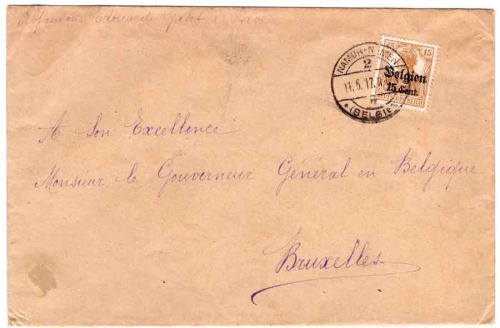 Edouard
NAMUR-NAMEN
2
11.5.17.
(BELGIE
15
Belgien
15 Cent.
A Son Excellence
Monsieur le Gouverneur Général en Belgique
Bruxelles